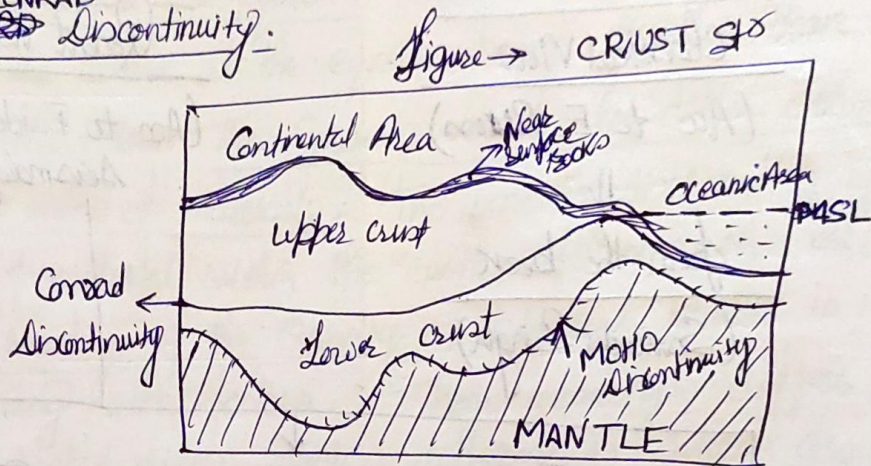 Discontinuity.
Figure → CRUST Str
Continental Area
Near
Surface
Rocks
Oceanic Area
MSL
Upper crust
Conrad
Discontinuity
Lower crust
MOHO
Discontinuity
MANTLE